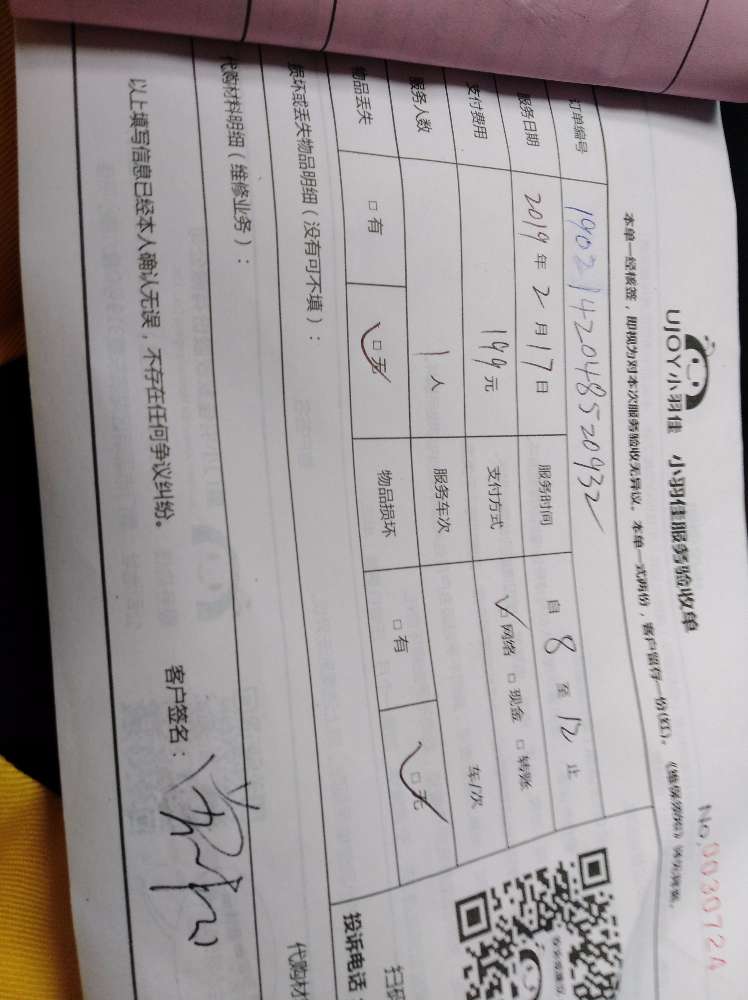 No.0030724
UJOY小羽佳 小羽佳服务验收单
本单一经核签，即视为对本次服务验收无异议。本单一式两份，客户留存一份(红)。
订单编号 190214204852093
服务日期 2019 年 2 月 17 日 服务时间 自 8 至 12 止
支付费用 199 元 支付方式 ☑ 网络 □ 现金 □ 转账
服务人数 1 人 服务车次 车/次
物品丢失 □ 有 ☑ 无 物品损坏 □ 有 ☑ 无
损坏或丢失物品明细（没有可不填）：
投诉电话
代购材料明细（维修业务）：
代购材
以上填写信息已经本人确认无误，不存在任何争议纠纷。 客户签名：